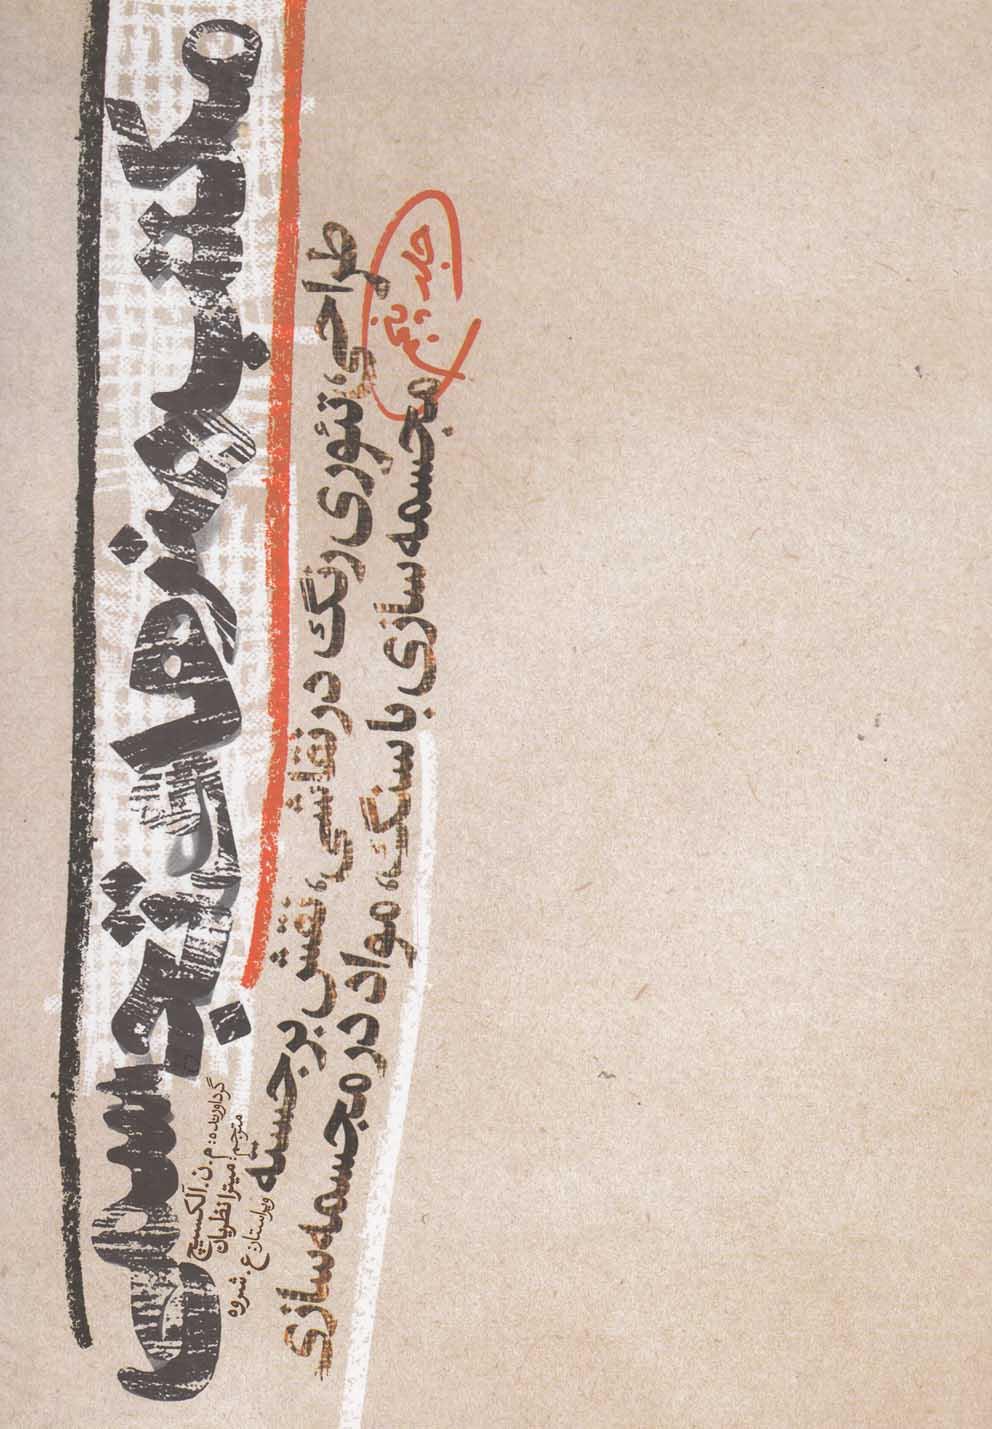 مکتب هنرهای تجسمی
گردآورنده: م. ن. آلکسیچ
مترجم: میترا نظریان
ویراستار: ع. شروه
طراحی، تئوری رنگ در نقاشی، نقش برجسته
مجسمه سازی با سنگ، مواد در مجسمه سازی
جلد پنجم